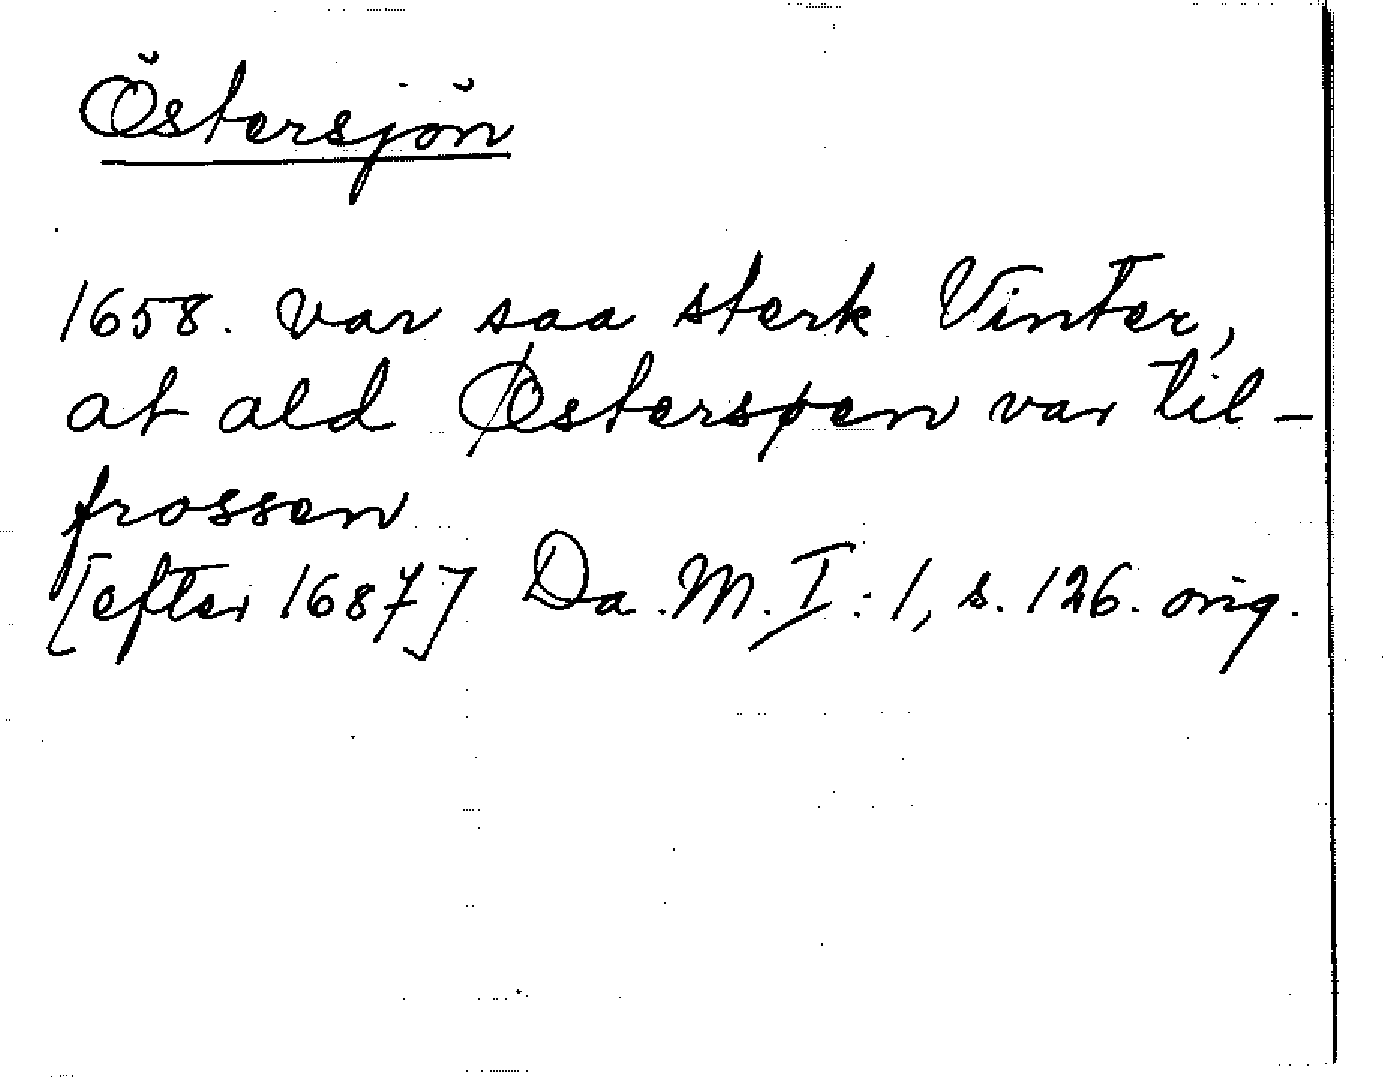 Östersjön
1658. var saa sterk Vinter,
at ald Østersøen var til-
frossen
[efter 1687] Da. M. I: 1, s. 126. orig.